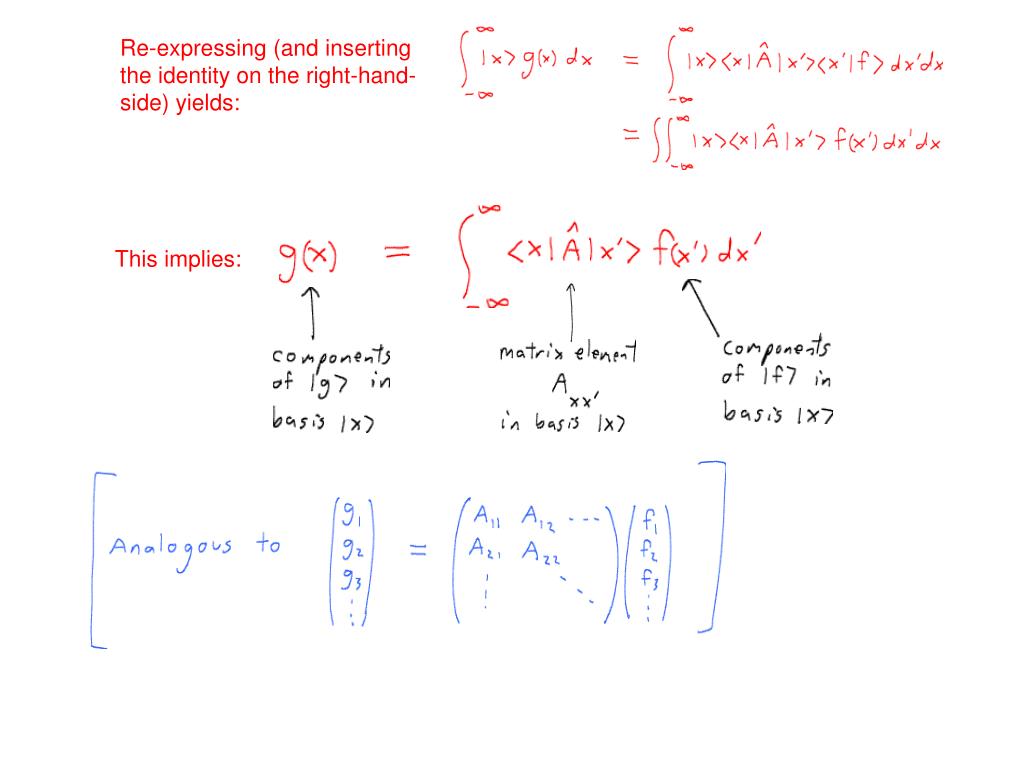 Re-expressing (and inserting
the identity on the right-hand-
side) yields:
∫_{-∞}^{∞} |x> g(x) dx = ∫_{-∞}^{∞} |x><x|Â|x'><x'|f> dx'dx
= ∬_{-∞}^{∞} |x><x|Â|x'> f(x') dx'dx
This implies: g(x) = ∫_{-∞}^{∞} <x|Â|x'> f(x') dx'
components
of |g> in
basis |x>
matrix element
A_{xx'}
in basis |x>
components
of |f> in
basis |x>
Analogous to
g₁
g₂
g₃
⋮
=
A₁₁ A₁₂ ---
A₂₁ A₂₂
⋮ ⋱
f₁
f₂
f₃
⋮